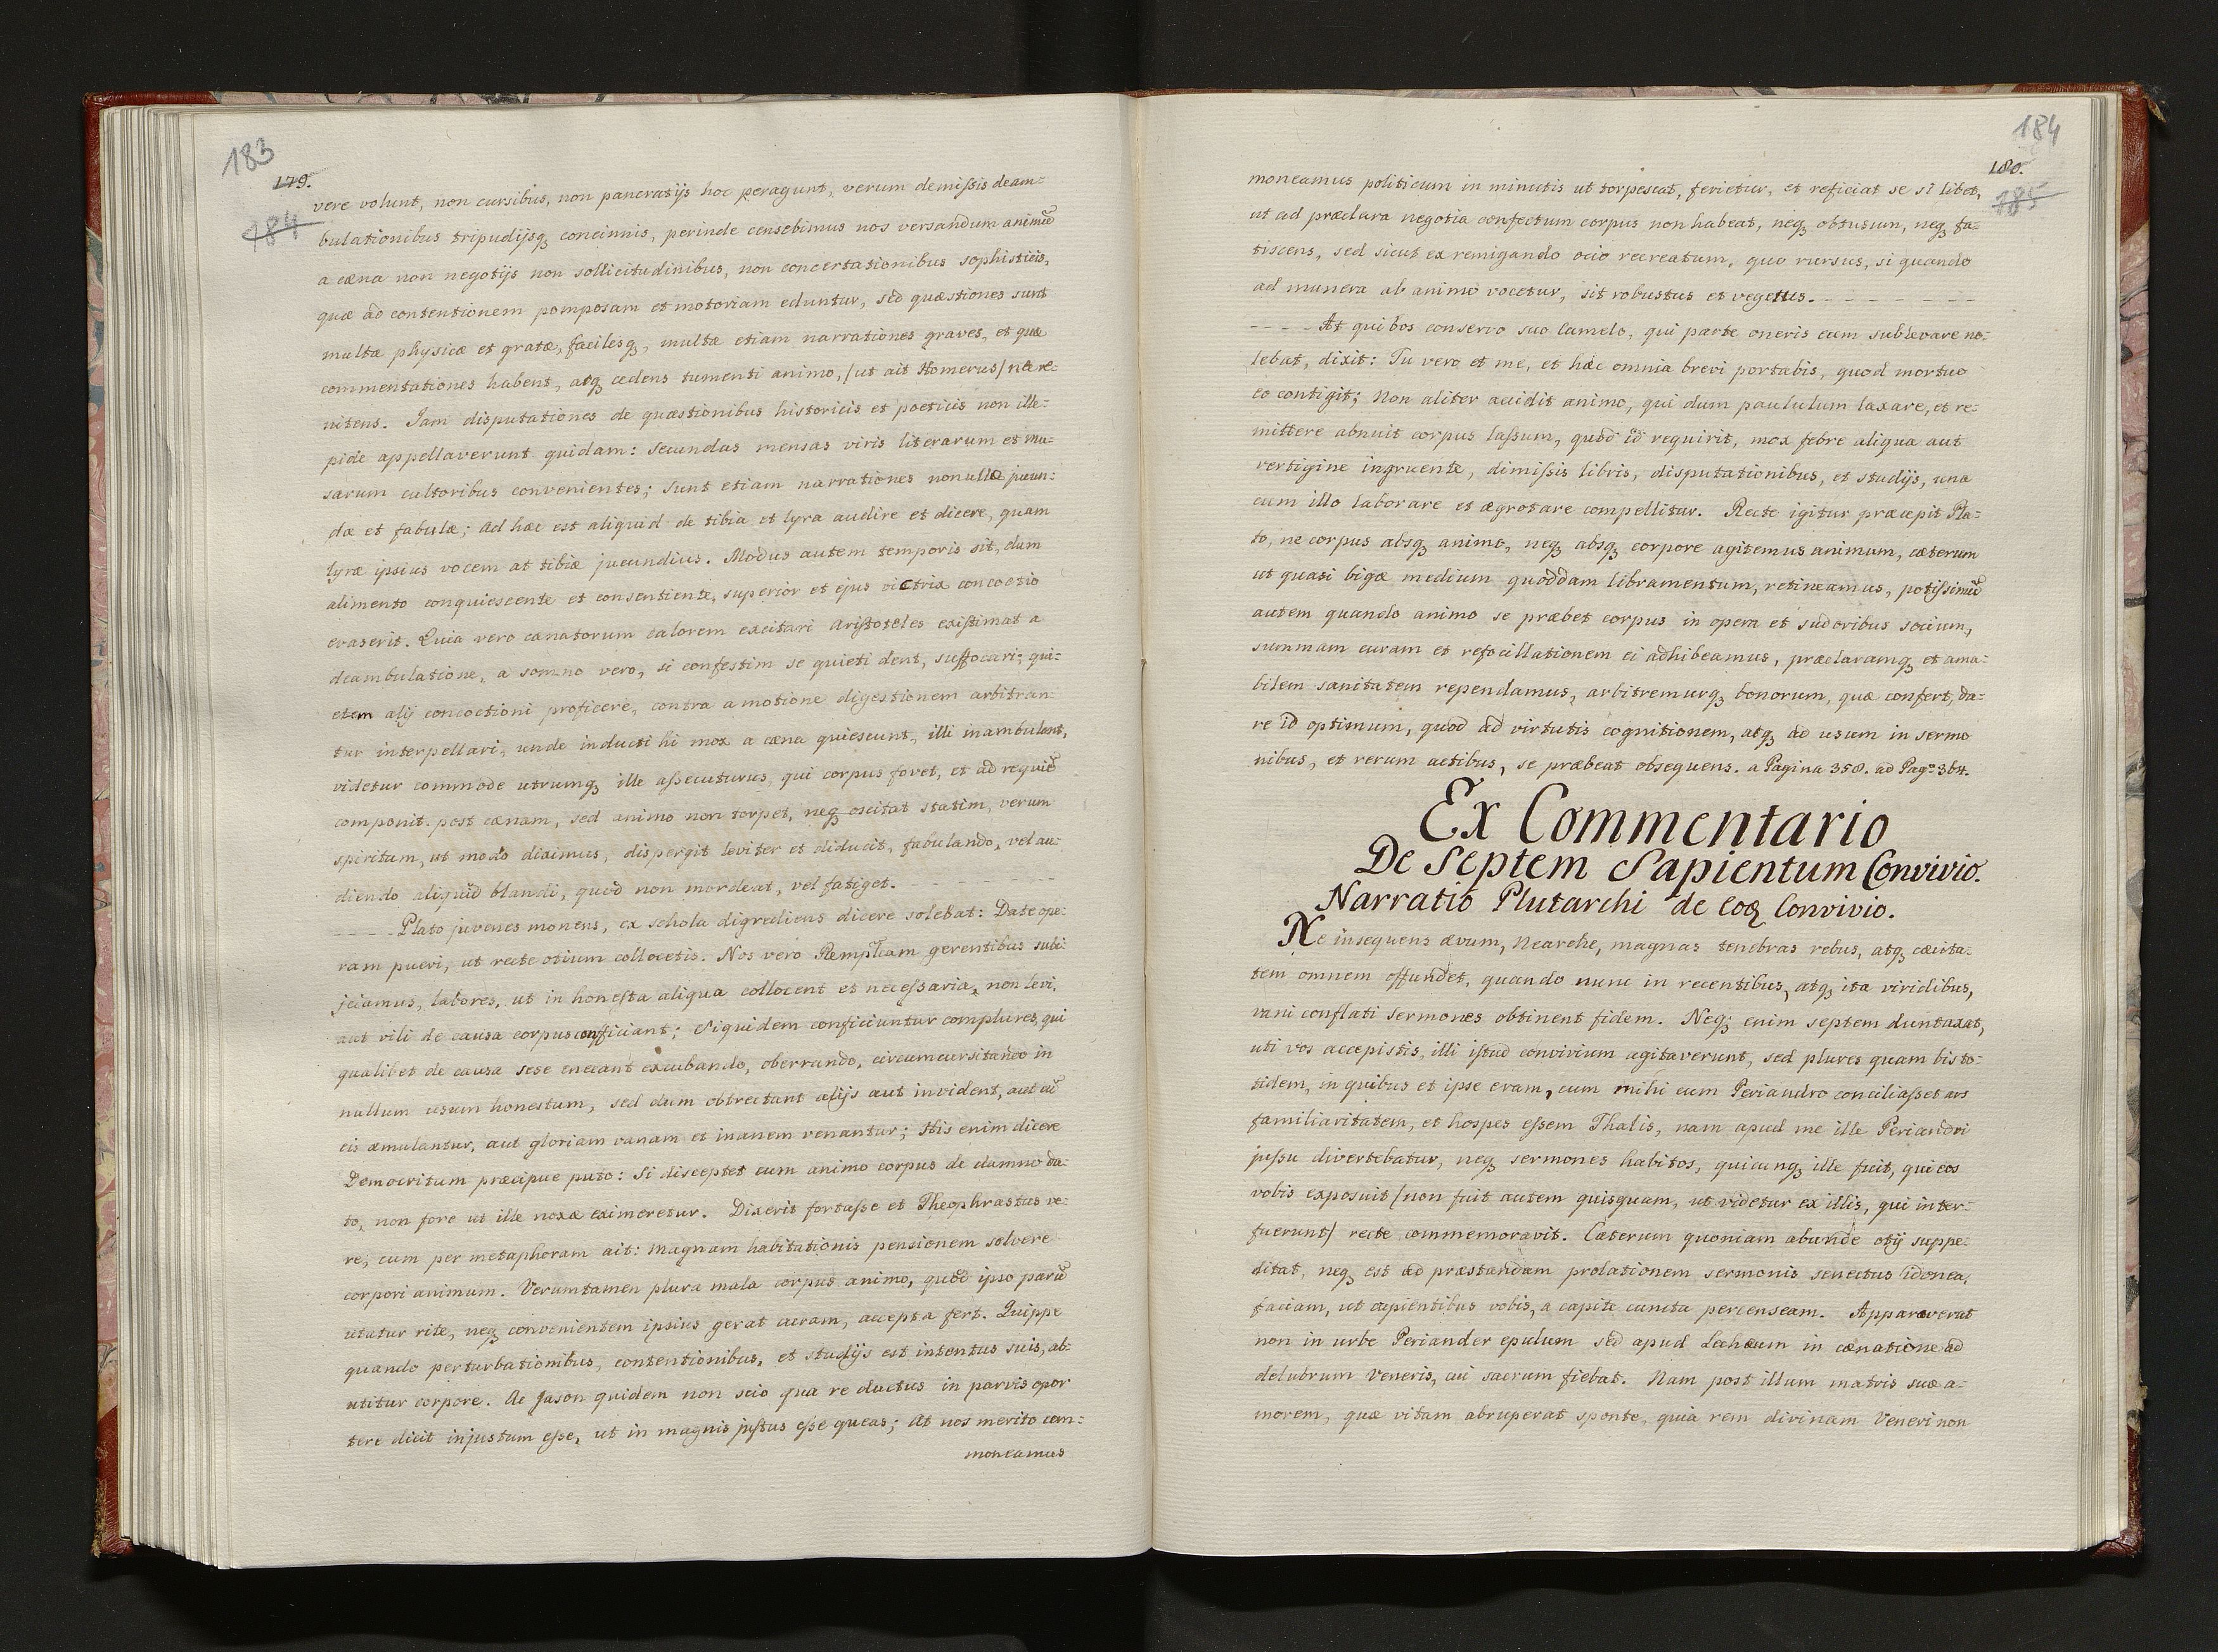 183
179.
184
vere volunt, non cursibus, non pancratijs hoc peragunt, verum demissis deam=
bulationibus tripudijsq₃ concinnis, perinde censebimus nos versandum animū
a cæna non negotijs non sollicitudinibus, non concertationibus sophisticis,
quæ ad contentionem pomposam et motoriam eduntur, sed quæstiones sunt
multæ physicæ et gratæ, facilesq₃, multæ etiam narrationes graves, et quæ
commentationes habent, atq₃ cedens tumenti animo, /ut ait Homerus/ ne re=
nitens. Jam disputationes de quæstionibus historicis et poeticis non ille=
pide appellaverunt quidam: secundas mensas viris literarum et mu=
sarum cultoribus convenientes; sunt etiam narrationes nonullæ jucun=
dæ et fabulæ; ad hæc est aliquid de tibia et lyra audire et dicere, quam
lyræ ipsius vocem at tibiæ jucundius. Modus autem temporis sit, dum
alimento conquiescente et consentiente, superior et ejus victrix concoctio
evaserit. Quia vero cænatorum calorem excitari Aristoteles existimat a
deambulatione, a somno vero, si confestim se quieti dent, suffocari; qui=
etem alij concoctioni proficere, contra a motione digestionem arbitran=
tur interpellari, unde inducti hi mox a cæna quiescunt, illi inambulant,
videtur commode utrumq₃ ille assecuturus, qui corpus fovet, et ad requiē
componit post cænam, sed animo non torpet, neq₃ oscitat statim, verum
spiritum, ut modo diximus, dispergit leviter et diducit, fabulando, vel au=
diendo aliquid blandi, quod non mordeat, vel fatiget. - - - - - - -
- - - - Plato juvenes monens, ex schola digrediens dicere solebat: Date ope=
ram pueri, ut recte otium collocetis. Nos vero Rempūam gerentibus subi=
jciamus, labores, ut in honesta aliqua collocent et necessaria, non levi,
aut vili de causa corpus conficiant; Siquidem conficiuntur complures, qui
qualibet de causa sese enecant excubando, oberrando, circumcursitando in
nullum usum honestum, sed dum obtrectant alijs aut invident, aut cū
eis æmulantur, aut gloriam vanam et inanem venantur; His enim dicere
Democritum præcipue puto: Si disceptet cum animo corpus de damno da=
to, non fore ut ille noxæ eximeretur. Dixerit fortasse et Theophrastus ve=
re, cum per metaphoram ait: magnam habitationis pensionem solvere
corpori animum. Verumtamen plura mala corpus animo, quòd ipso parū
utatur rite, neq₃ convenientem ipsius gerat curam, accepta fert. Quippe
quando perturbationibus, contentionibus, et studijs est intentus suis, ab=
utitur corpore. Ac Jason quidem non scio qua re ductus in parvis opor
tere dicit injustum esse, ut in magnis justus esse queas; At nos merito com=
moneamus
184
180.
185
moneamus politicum in minutis ut torpescat, ferietur, et reficiat se si libet,
ut ad præclara negotia confectum corpus non habeat, neq₃ obtusum, neq₃ fa=
tiscens, sed sicut ex remigando ocio recreatum, quo rursus, si quando
ad munera ab animo vocetur, sit robustus et vegetus. - - - - - - - -
- - - - At qui bos conservo suo camelo, qui parte oneris eum sublevare no=
lebat, dixit: Tu vero et me, et hæc omnia brevi portabis, quod mortuo
eo contigit; Non aliter accidit animo, qui dum paululum laxare, et re=
mittere abnuit corpus lassum, quod id requirit, mox febre aliqua aut
vertigine ingruente, dimissis libris, disputationibus, et studijs, una
cum illo laborare et ægrotare compellitur. Recte igitur præcepit Pla=
to, ne corpus absq₃ animo, neq₃ absq₃ corpore agitemus animum, cæterum
ut quasi bigæ medium quoddam libramentum, retineamus, potissimū
autem quando animo se præbet corpus in opera et sudoribus socium,
summam curam et refocillationem ei adhibeamus, præclaramq₃ et ama=
bilem sanitatem rependamus, arbitremurq₃ bonorum, quæ confert, da=
re id optimum, quod ad virtutis cognitionem, atq₃ ad usum in sermo
nibus, et rerum actibus, se præbeat obsequens. a Pagina 358. ad Pagᵃ 364.
Ex Commentario
De Septem Sapientum Convivio.
Narratio Plutarchi de eoq₃ Convivio.
Ne insequens ævum, Nearche, magnas tenebras rebus, atq₃ cæcita=
tem omnem offundet, quando nunc in recentibus, atq₃ ita viridibus,
vani conflati sermones obtinent fidem. Neq₃ enim septem duntaxat,
uti vos accepistis, illi istud convivium agitaverunt, sed plures quam bis to=
tidem, in quibus et ipse eram, cum mihi cum Periandro conciliasset ars
familiaritatem, et hospes essem Thalis, nam apud me ille Periandri
jussu divertebatur, neq₃ sermones habitos, quicunq₃ ille fuit, qui eos
vobis exposuit /non fuit autem quisquam, ut videtur ex illis, qui inter=
fuerunt/ recte commemoravit. Cæterum quoniam abunde otij suppe=
ditat, neq₃ est ad præstandam prolationem sermonis senectus idonea,
faciam, ut cupientibus vobis, a capite cuncta percenseam. Apparaverat
non in urbe Periander epulum sed apud Lechæum in cænatione ad
delubrum Veneris, cui sacrum fiebat. Nam post illum matris suæ a=
morem, quæ vitam abruperat sponte, quia rem divinam Veneri non